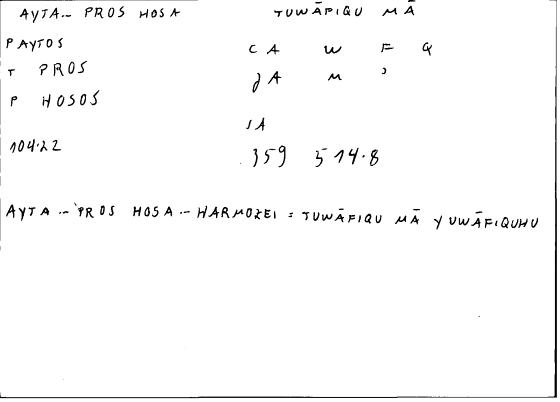 AYTA... PROS HOSA TUWĀFIQU MĀ
P AYTOS C A W F Q
T PROS JA M ʾ
P HOSOS
1A
104.22 359 514.8
AYTA ... PROS HOSA ... HARMOZEI = TUWĀFIQU MĀ YUWĀFIQUHU